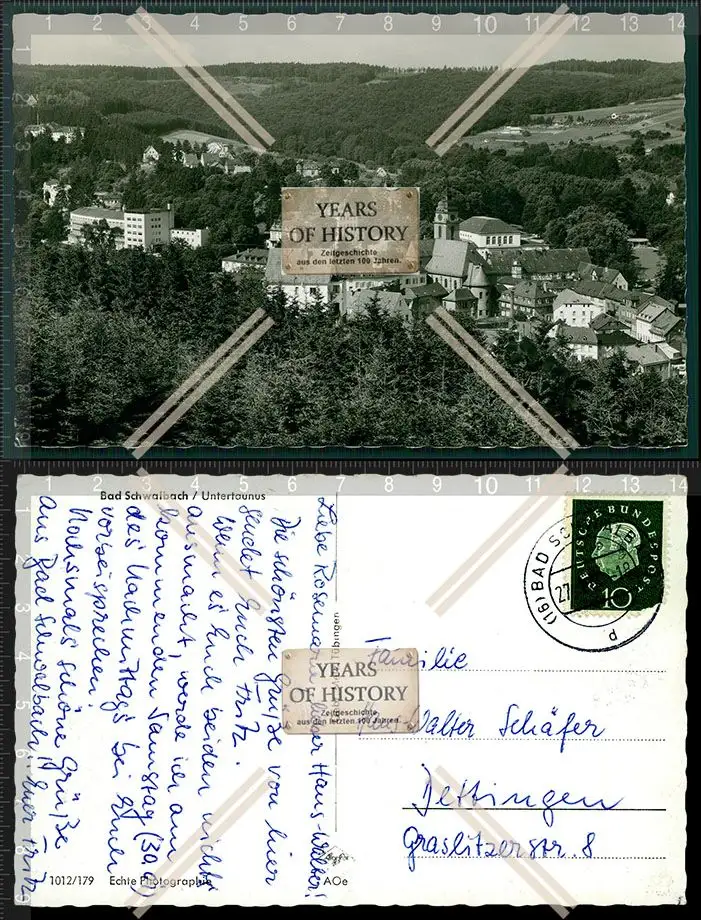 YEARS
OF HISTORY
Zeitgeschichte
aus den letzten 100 Jahren.
Bad Schwalbach / Untertaunus
Liebe Rosemarie, lieber Hans-Walter!
Die schönsten Grüße von hier
sendet Euch Fritz.
Wenn es Euch beiden nichts
ausmacht, werde ich am
kommenden Samstag (30.
des Nachmittags bei Euch
vorbeisprechen.
Nochmals schöne Grüße
aus Bad Schwalbach, Euer Fritz
Tübingen
YEARS
OF HISTORY
Zeitgeschichte
aus den letzten 100 Jahren.
DEUTSCHE BUNDESPOST
10
(16) BAD SCHWALB
27
d
Familie
Walter Schäfer
Dettingen
Graslitzerstr. 8
1012/179 Echte Photographie
AOe